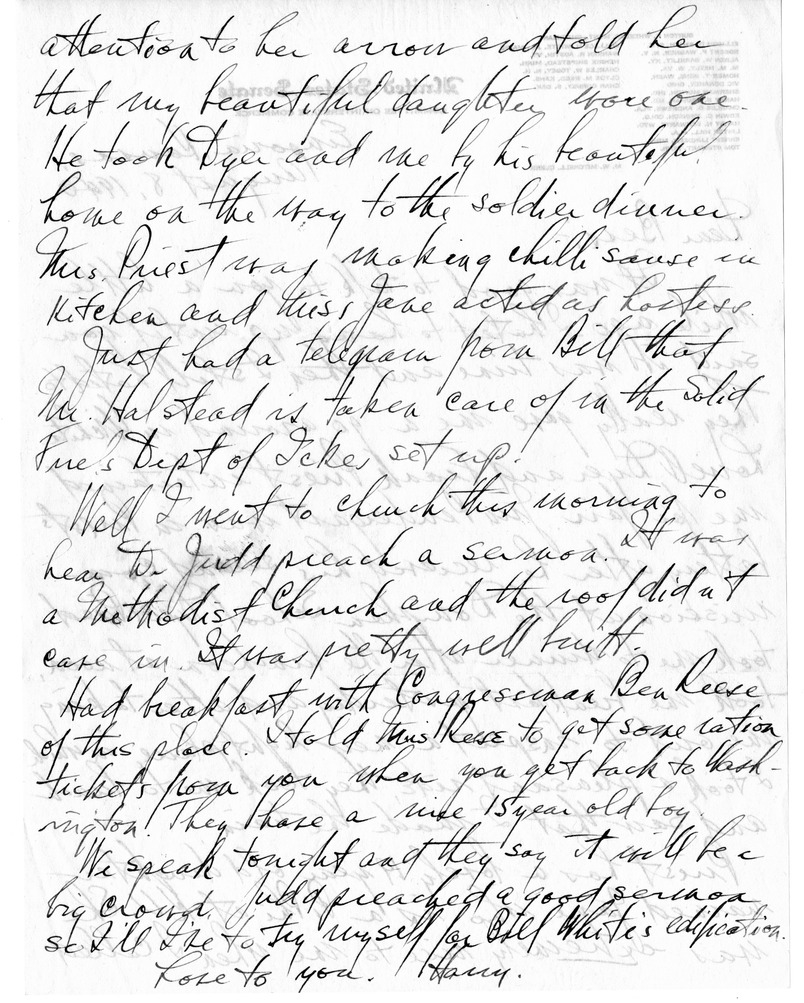 attention to her arrow and told her
that my beautiful daughter wore one.
He took Dyer and me by his beautiful
home on the way to the soldier dinner.
Mrs. Priest was making chilli sause in
Kitchen and Miss Jane acted as hostess.
Just had a telegram from Bill that
Mr. Halstead is taken care of in the Solid
Fuels Dept of Ickes set up.
Well I went to church this morning to
hear Dr. Judd preach a sermon. It was
a Methodist Church and the roof didn't
cave in. It was pretty well built.
Had breakfast with Congressman Ben Reese
of this place. I told Mrs Reese to get some ration
tickets from you when you get back to Wash-
ington. They have a nice 15 year old boy.
We speak tonight and they say it will be a
big crowd. Judd preached a good sermon
so I'll I've to try myself for Bill White's edification.
Love to you. Harry.
United States Senate